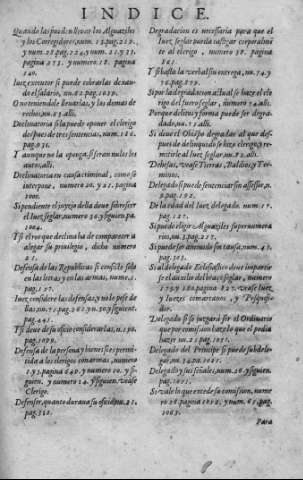 INDICE.
Quando las pueden llevar los Alguaziles
y los Corregidores, num. 15. pag. 219.
y num. 28. pag. 224. y num. 21. y 23.
pagina 273. y numero 18. pagina
140.
Iuez executor si puede cobrar las
de salario, num. 62. pag. 1039.
O no teniendole llevarlas, y los demas de
rechos, num. 63. alli.
Declinatoria si la puede oponer el clerigo
despues de tres sentencias, num. 186.
pag. 631.
Y aunque no la oponga, si seran nulos los
autos, alli.
Declinatoria en causa criminal, como se
interpone, numero 20. y 21. pagina
1002.
Si pendiente el juyzio della deve sobreseer
el Iuez seglar, numero 36. y siguien. pa.
1004.
Y si el reo que declina ha de comparecer a
alegar su privilegio, dicho numero
21.
Defensa de las Republicas si consiste solo
en las letras y en las armas, nume. 2.
pag. 127.
Iuez considere las defensas, y no le pese de
las, nu. 75. pag. 262. n. 50. y siguien.
pag. 1004.
Y si deve de su oficio considerarlas, n. 130.
pag. 1099.
Defensa de la persona y bienes si es permi
tida a los clerigos con armas, numero
13. pagina 640. y numero 20. y si
guien. y numero 24. y siguien. vease
Clerigo.
Defensor, quanto durava su oficio, nu. 21.
pag. 318.
Degradacion es necessaria para que el
Iuez seglar pueda castigar corporalmē
te al clerigo, numero 38. pagina
Y si basta la verbal sin entrega, nu. 74. y
70. pag. 609.
Si por la degradacion actual se haze el cle
rigo del fuero seglar, numero 74. alli.
Porque delitos y forma puede ser degra
dado, nu. 71. alli.
Si deve el Obispo degradar al que des-
pues de delinquido se hizo clerigo, y re-
mitirle al Iuez seglar, nu. 72. alli.
Dehesas, vease Tierras, Baldios, y Ter-
minos.
Delegado si puede sentenciar sin assessor, n.
9. pag. 192.
De la edad del Iuez delegado. num. 17.
pag. 127.
Si puede elegir Alguaziles supernumera
rios, nu. 3. pag. 217.
Si puede ser removido sin causa, num. 43.
pag. 303.
Si al delegado Eclesiastico deve impartir
se el auxilio del braço seglar, numero
179. y 180. pagina 827. vease Iuez,
y Iuezes comarcanos, y Pesquesi-
dor.
Delegado si se juzgará ser el Ordinario
que por comision haze lo que el podia
hazer nu. 23. pag. 1031.
Delegado del Principe si puede subdele-
gar, nu. 34. pa. 1021.
Delegado y sus señales, num. 26. y siguien.
pag. 1021.
Si vale lo que excede su comission, nume
ro 28. pagina 1022. y num. 65. pag.
1069.
Para